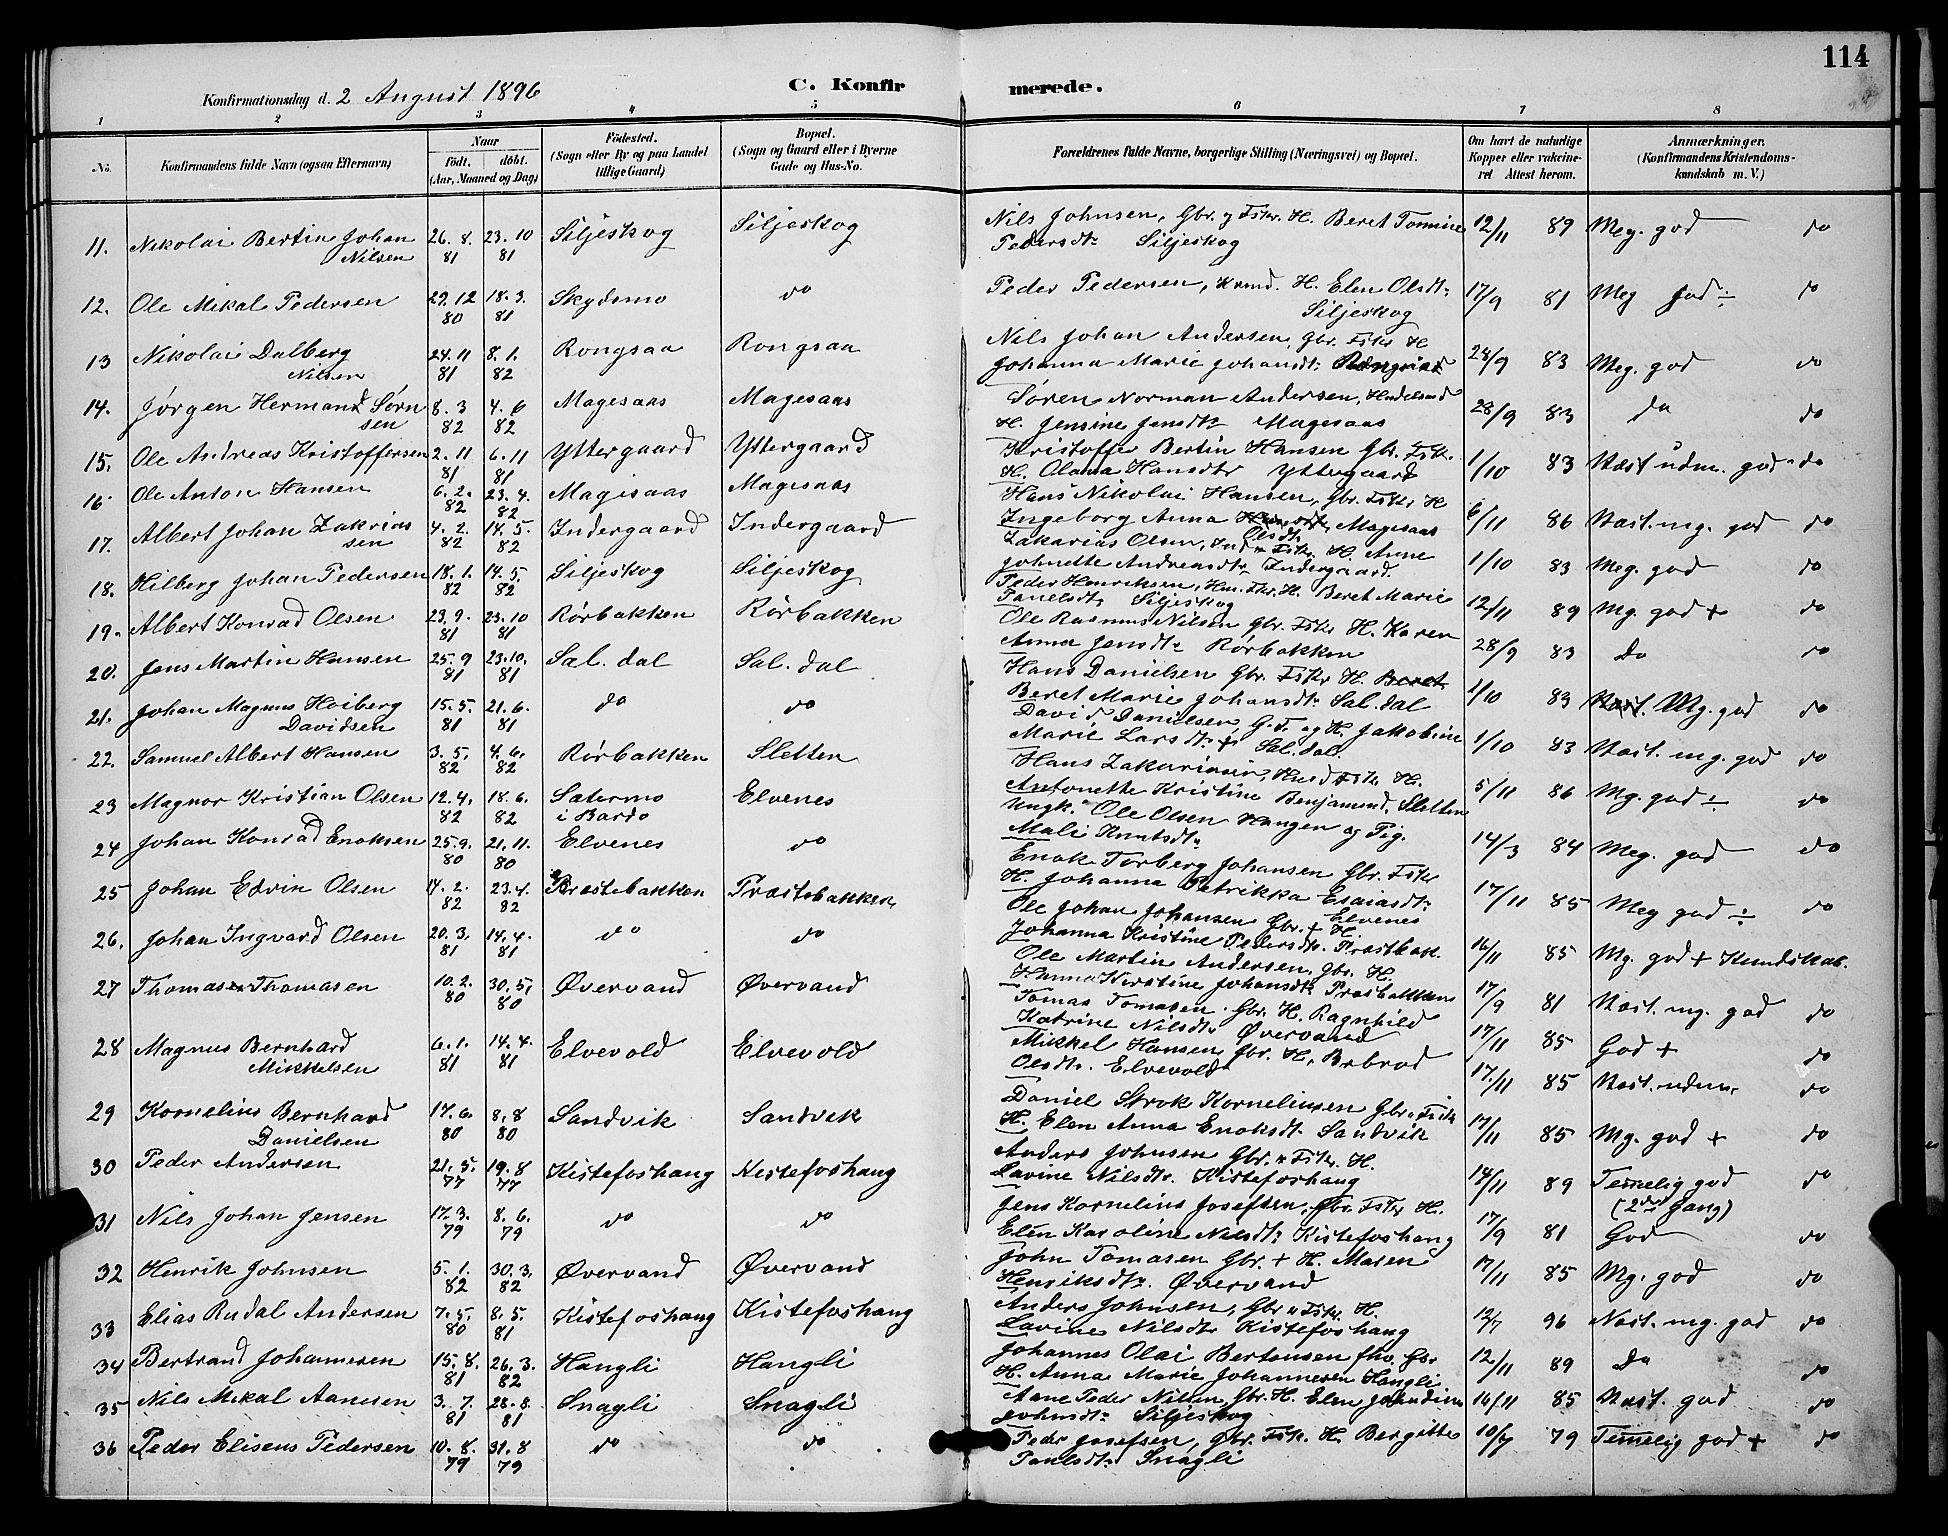 114
Konfirmationsdag d. 2 August 1896
C. Konfirmerede.
1 2 3 4 5 6 7 8
No.
Konfirmandens fulde Navn (ogsaa Efternavn)
Naar
födt. döbt.
(Aar, Maaned og Dag)
Födested.
(Sogn eller By og paa Landet
tillige Gaard)
Bopæl.
(Sogn og Gaard eller i Byerne
Gade og Hus-No.
Forældrenes fulde Navne, borgerlige Stilling (Næringsvei) og Bopæl.
Om havt de naturlige
Kopper eller vakcine-
ret Attest herom.
Anmærkninger.
(Konfirmandens Kristendoms-
kundskab m. V.)
11. Nikolai Bertin Johan Nilsen 26. 8. 81 23. 10 81 Siljeskog Siljeskog Nils Johnsen, Gbr. og Fskr. H. Beret Tomine
Pedersdtr Siljeskog 12/11 89 Meg. god do
12. Ole Mikal Pedersen 29. 12 80 18. 3. 81 Skydsmo do Peder Pedersen, H. Elen Olsdtr
Siljeskog 17/9 81 Meg god ÷ do
13 Nikolai Dalberg Nilsen 24. 11 81 8. 1. 82 Rongsaa Rongsaa Nils Johan Andersen, Gbr. Fskr H
Johanna Marie Johansdtr 28/9 83 Meg. god do
14. Jørgen Hermand Sørnsen 8. 3 82 4. 6 82 Magesaas Magesaas Søren Norman Andersen,
H. Jensine Jensdtr Magesaas 28/9 83 Do do
15. Ole Andreas Kristoffersen 2. 11 81 6. 11 81 Yttergaard Yttergaard Kristoffer Bertin Hansen Gbr. Fsk.
H. Olana Hansdtr Yttergaard 1/10 83 Næst udm. god do
16 Ole Anton Hansen 6. 2. 82 23. 4. 82 Magesaas Magesaas Hans Nikolai Hansen, Gbr. Fskr H
Ingeborg Anna Olsdtr Magesaas 6/11 86 Næst. mg. god do
17. Albert Johan Zakriassen 4. 2. 82 14. 5. 82 Indergaard Indergaard Zakarias Olsen, Ind. Fskr. H. Anne
Johnette Andreasdtr Indergaard. 1/10 83 Meg. god do
18. Hilberg Johan Pedersen 18. 1. 82 14. 5. 82 Siljeskog Siljeskog Peder Henriksen, H. Beret Marie
Siljeskog 12/11 89 Mg. god + do
19. Albert Konrad Olsen 23. 9. 81 23. 10 81 Rørbakken Rørbakken Ole Rasmus Nilsen Gbr. Fskr H. Karen
Anna Jensdtr Rørbakken 28/9 83 Do do
20. Jens Martin Hansen 25. 9 81 23. 10. 81 Sal. dal Sal. dal Hans Danielsen Gbr. Fskr H. Beret
Beret Marie Johansdtr Sal. dal 1/10 83 Næst. Mg. god do
21. Johan Magnus Hoiberg Davidsen 15. 5. 81 21. 6. 81 do do David Danielsen, G. F. og H. Jakobine
Marie Larsdtr + Sal. dal. 1/10 83 Næst. mg. god do
22. Samuel Albert Hansen 3. 5. 82 4. 6. 82 Rørbakken Sletten Hans Zakariasen, Fskr H.
Antonette Kristine Benjamind. Sletten 5/11 86 Mg. god ÷ do
23 Magnor Kristian Olsen 12. 4. 82 18. 6. 82 Sætermo i Bardo Elvenes Ungk. Ole Olsen Haugen og Pig.
Mali Knutsdtr 14/3 84 Meg. god do
24 Johan Konrad Enoksen 25. 9. 80 21. 11. 80 Elvenes do Enok Torberg Johansen Gbr. Fskr
H. Johanna Petrikka Esaiasdtr Elvenes 17/11 85 Meg god ÷ do
25 Johan Edvin Olsen 4. 2. 82 23. 4. 82 Præstebakken Præstebakken Ole Johan Johansen Gbr. + H.
Johanna Kristine Pedersdtr. Præstbak. 16/11 85 Mg. god + Kundskab.
26. Johan Ingvard Olsen 20. 3. 81 14. 4. 81 do do Ole Martin Andersen, Gbr. H.
Hanna Kirstine Johansdtr Præstbakken 17/9 81 Næst. mg. god do
27 Thomas Thomasen 10. 2. 80 30. 5. 80 Øvervand Øvervand Tomas Tomasen Gbr. H. Ragnhild
Katrine Nilsdtr Øvervand 17/11 85 God + do
28 Magnus Bernhard Mikkelsen 6. 1. 81 14. 4. 81 Elvevold Elvevold Mikkel Hansen Gbr. H.
Olsdtr. Elvevold 17/11 85 Næst. udm. do
29 Kornelius Bernhard Danielsen 17. 6. 80 8. 8 80 Sandvik Sandvik Daniel Strok Korneliusen Gbr. Fskr
H. Elen Anna Enoksdtr Sandvik 17/11 85 Mg. god + do
30 Peder Andersen 21. 5. 77 19. 8 77 Kistefoshang Kistefoshang Anders Johnsen Gbr. Fskr. H.
Lavine Nilsdtr. Kistefoshang 14/11 89 Temelig god do
(2den Gang)
31 Nils Johan Jensen 17. 3. 79 8. 6. 79 do do Jens Kornelius Joseftsen, Gbr. Fskr H.
Elen Karoline Nilsdtr Kistefoshang 17/9 81 God do
32 Henrik Johnsen 5. 1. 82 30. 3. 82 Øvervand Øvervand John Tomasen Gbr. + H. Maren
Henriksdtr. Øvervand 17/11 85 Mg. god do
33 Elias Rudal Andersen 7. 5. 80 8. 5. 81 Kistefoshang Kistefoshang Anders Johnsen, Gbr Fskr. H.
Lavine Nilsdtr Kistefoshang 12/7 96 Næst. mg. god do
34 Bertrand Johannesen 15. 8. 81 26. 3. 82 Hangli Hangli Johannes Olai Bertensen fhv. Gbr
H. Anna Marie Johannesen Hangli 12/11 89 Do do
35 Nils Mikal Aanesen 3. 7. 81 28. 8. 81 Snagli Snagli Aane Peder Nilsen Gbr. H. Elen
Johnsdtr Siljeskog 16/11 85 Næst. god do
36 Peder Elisens Pedersen 10. 8. 79 31. 8 79 do do Peder Josefsen, Gbr. Fsk. H. Bergitte
Paulsdtr. Snagli 10/7 79 Temelig god + do